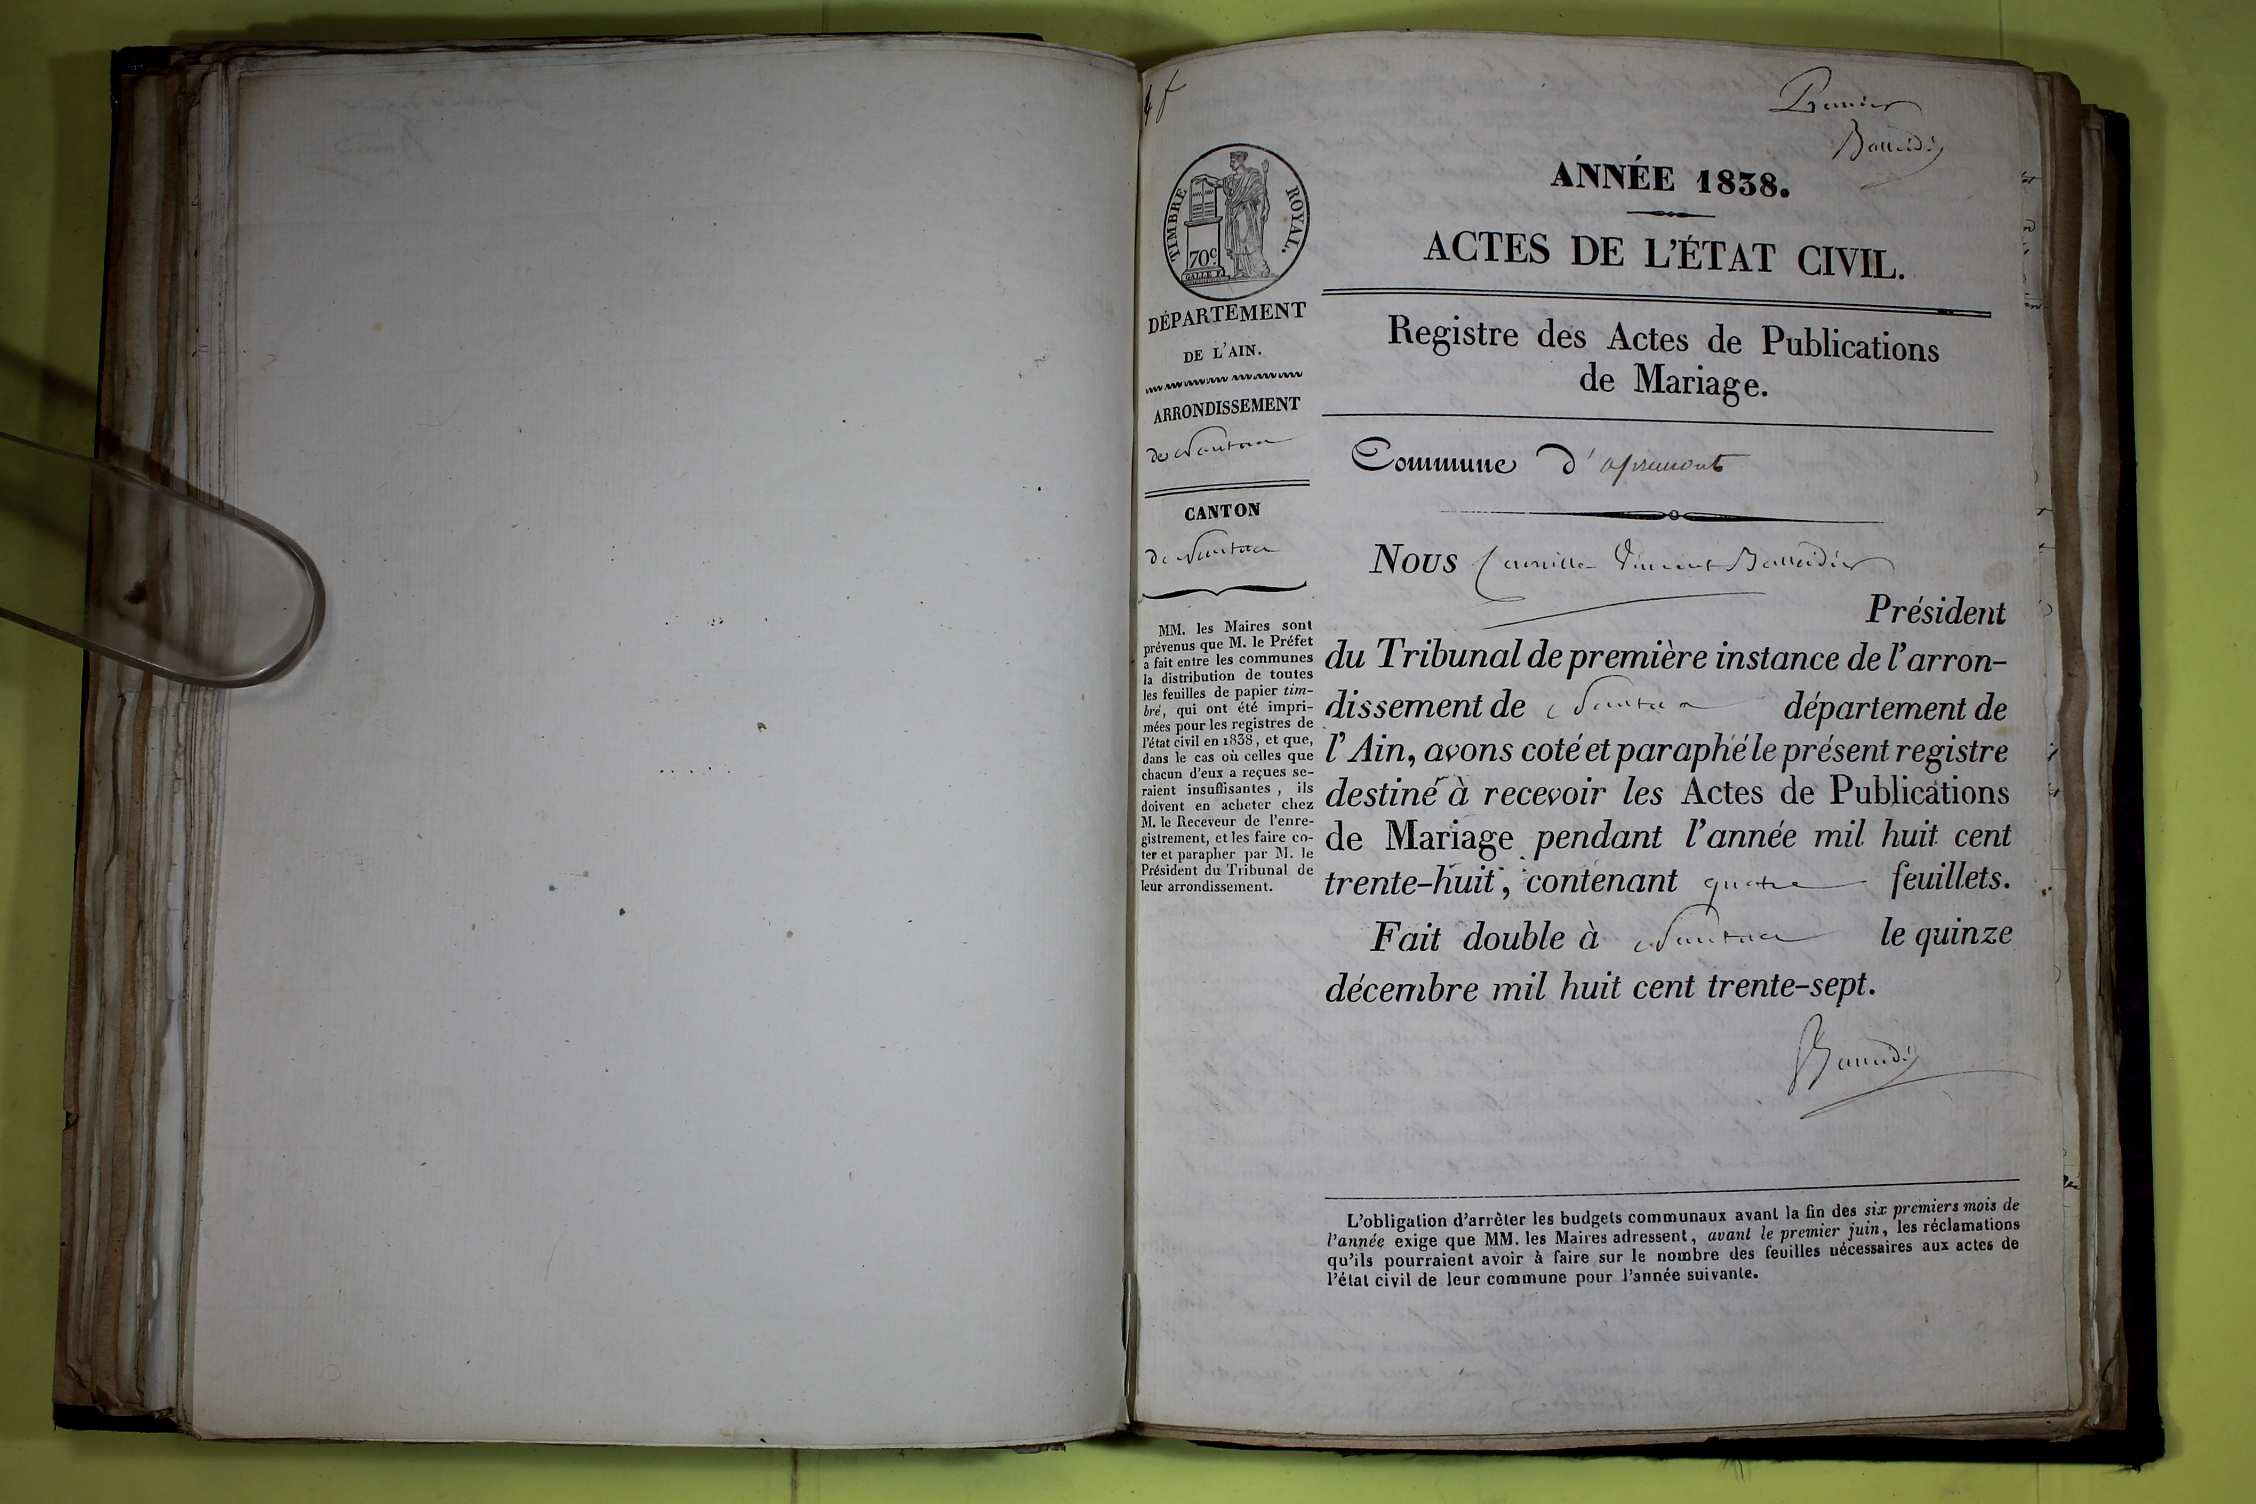 4 f
Premier
TIMBRE ROYAL.
70c
GALLE F.
DÉPARTEMENT
DE L'AIN.
ARRONDISSEMENT
de Nantua
CANTON
de Nantua
MM. les Maires sont
prévenus que M. le Préfet
a fait entre les communes
la distribution de toutes
les feuilles de papier tim-
bré, qui ont été impri-
mées pour les registres de
l'état civil en 1838, et que,
dans le cas où celles que
chacun d'eux a reçues se-
raient insuffisantes, ils
doivent en acheter chez
M. le Receveur de l'enre-
gistrement, et les faire co-
ter et parapher par M. le
Président du Tribunal de
leur arrondissement.
ANNÉE 1838.
ACTES DE L'ÉTAT CIVIL.
Registre des Actes de Publications
de Mariage.
Commune d'apremont
Nous Camille Vincent
Président
du Tribunal de première instance de l'arron-
dissement de Nantua département de
l'Ain, avons coté et paraphé le présent registre
destiné à recevoir les Actes de Publications
de Mariage pendant l'année mil huit cent
trente-huit, contenant quatre feuillets.
Fait double à Nantua le quinze
décembre mil huit cent trente-sept.
L'obligation d'arrêter les budgets communaux avant la fin des six premiers mois de
l'année exige que MM. les Maires adressent, avant le premier juin, les réclamations
qu'ils pourraient avoir à faire sur le nombre des feuilles nécessaires aux actes de
l'état civil de leur commune pour l'année suivante.